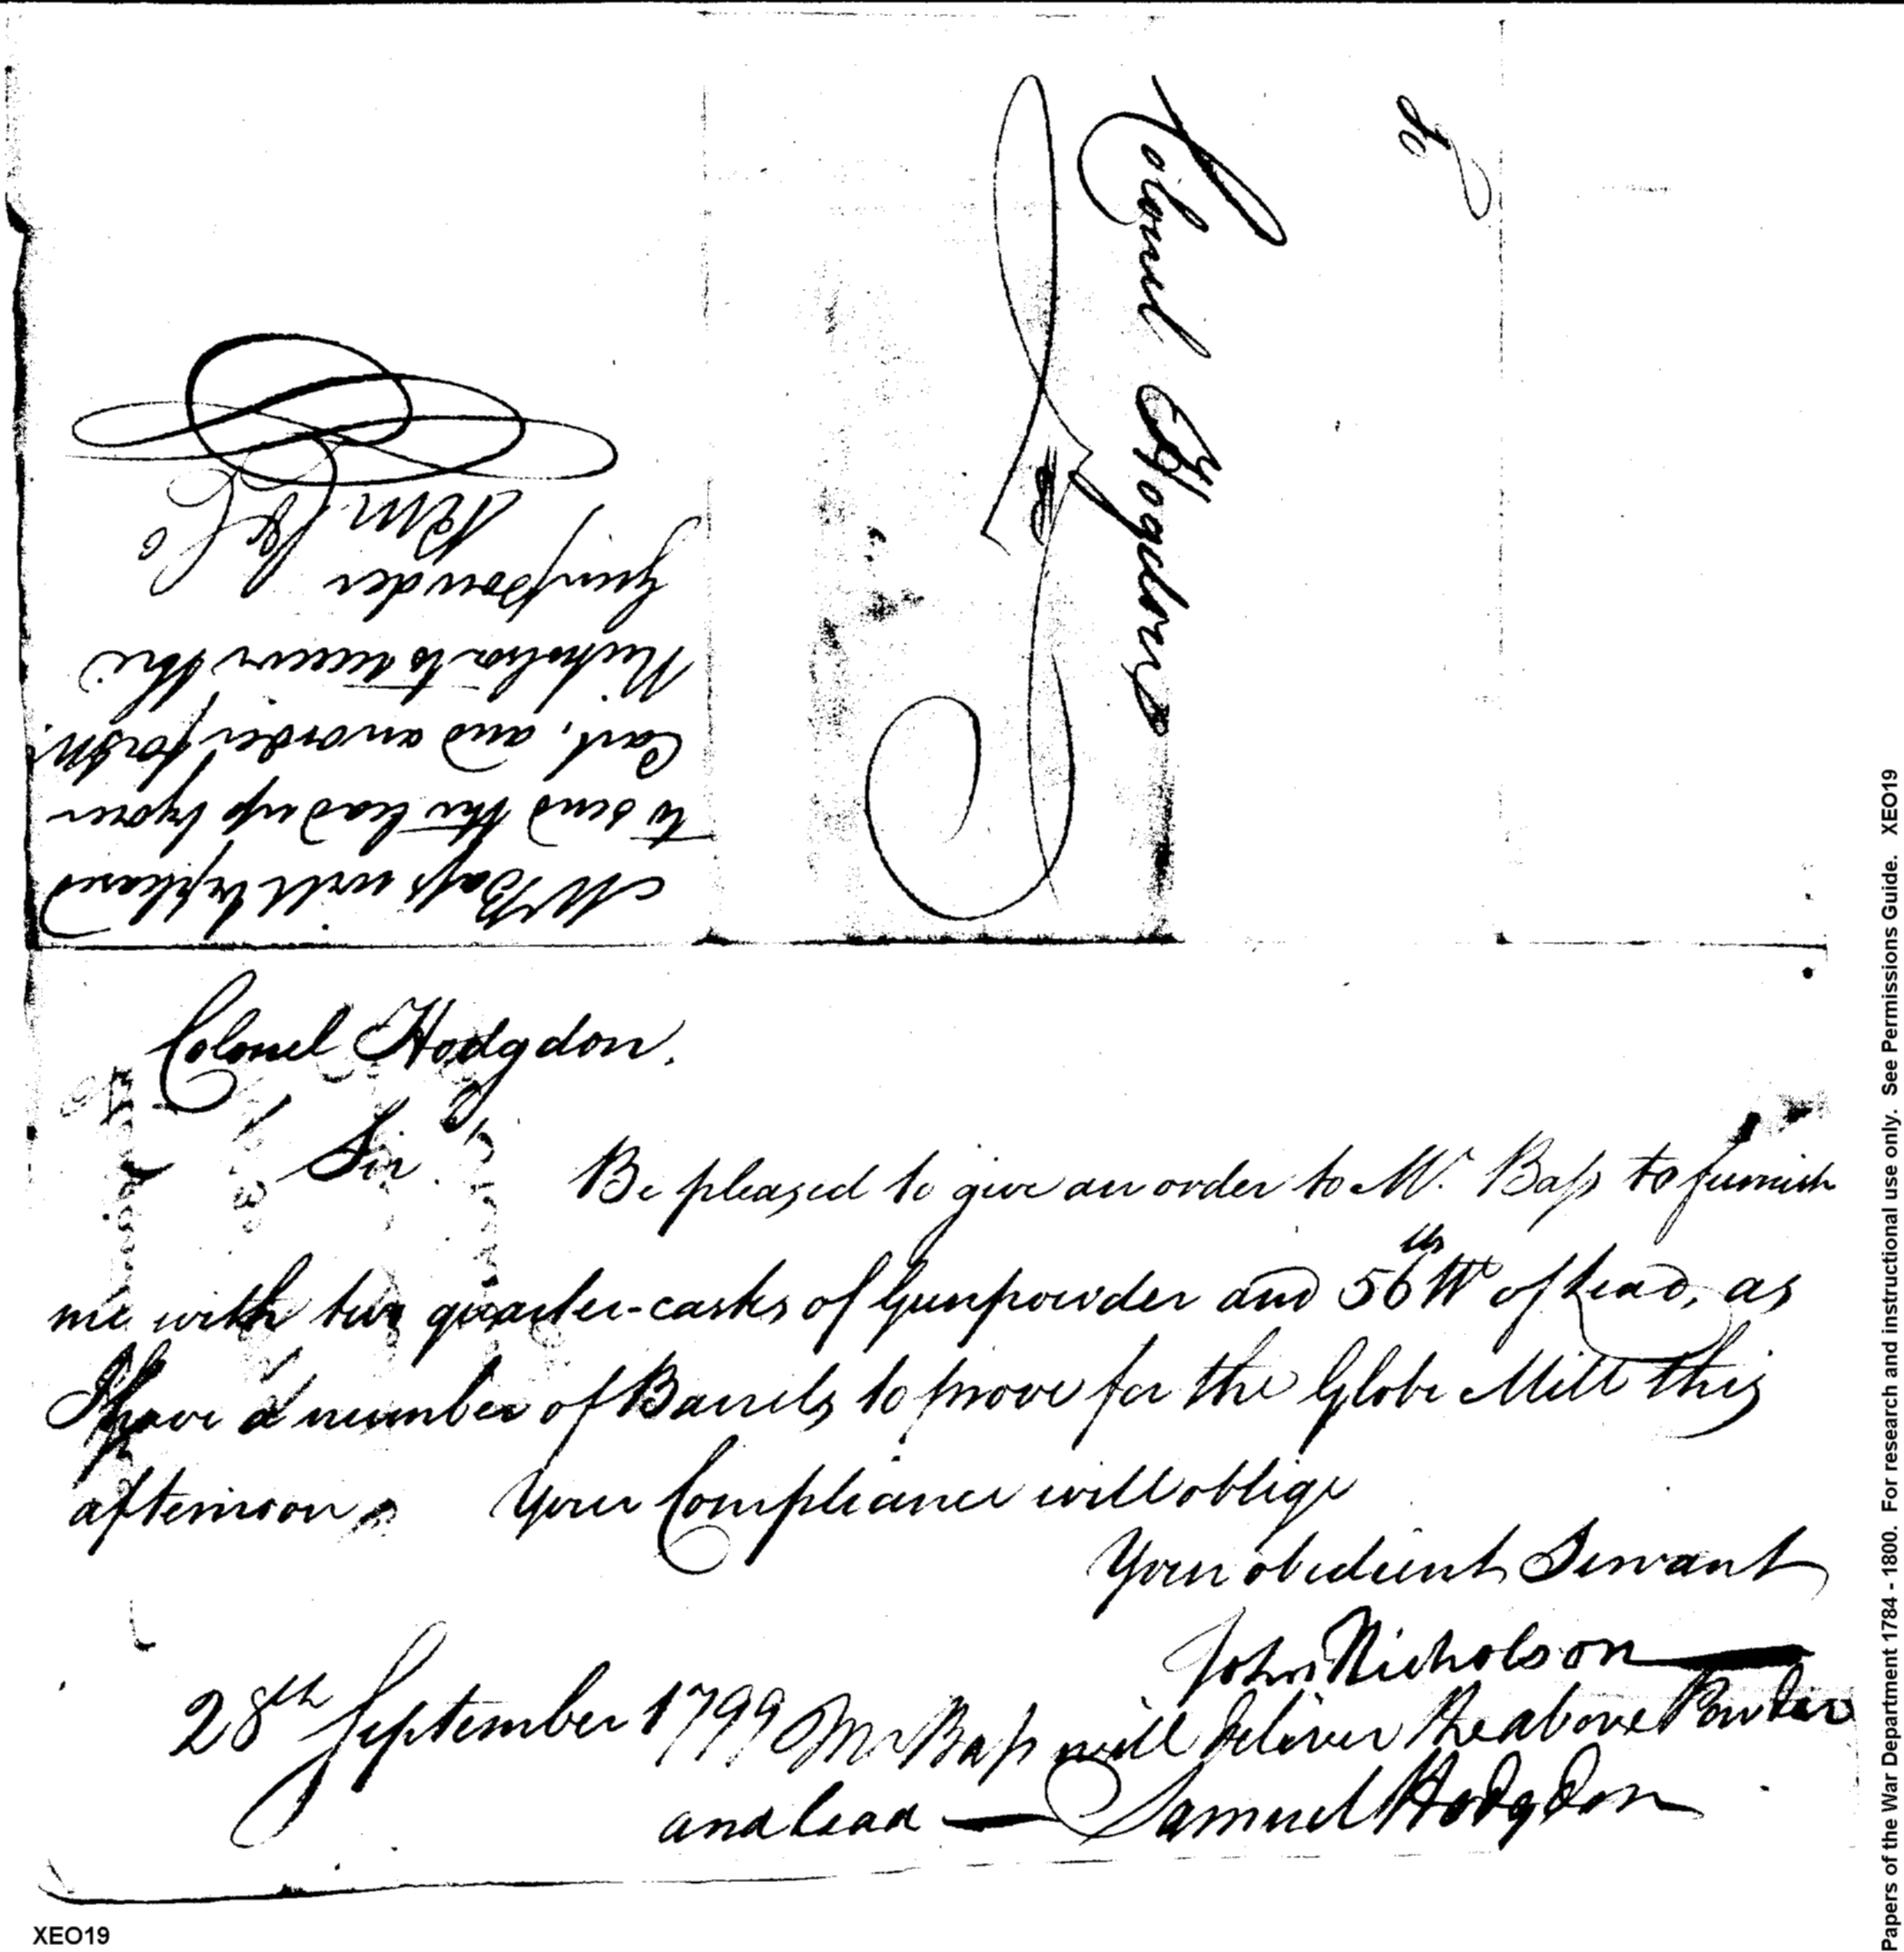 To
Colonel Hogdons
Mr Bass will be pleased
to send the lead up by our
Cart, and an order for Mr.
Nicholson to receive the
Gunpowder
Colonel Hodgdon.
Sir. Be pleased to give an order to Mr. Bass to furnish
me with two quarter-casks of Gunpowder and 56 lbs Wt of Lead, as
I have a number of Barrels to prove for the Globe Mill this
afternoon. Your Compliance will oblige
Your obedient Servant
John Nicholson
28th September 1799 Mr Bass will deliver the above Powder
and lead — Samuel Hodgdon
XEO19
Papers of the War Department 1784 - 1800. For research and instructional use only. See Permissions Guide. XEO19